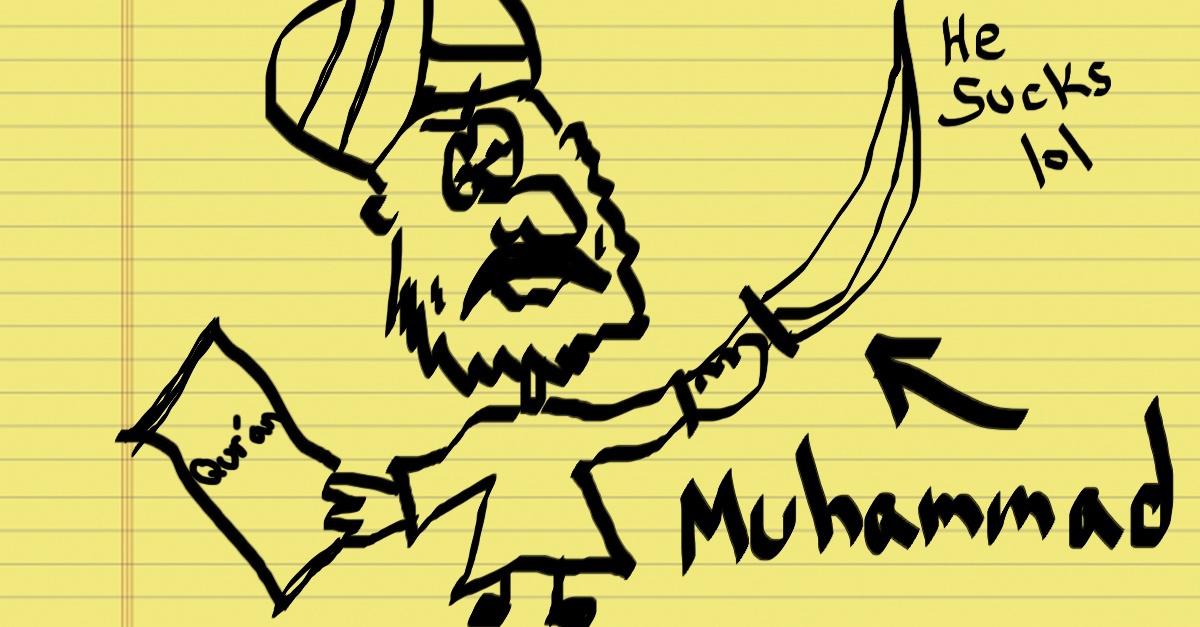 He
Sucks
lol
Qur'an
Muhammad